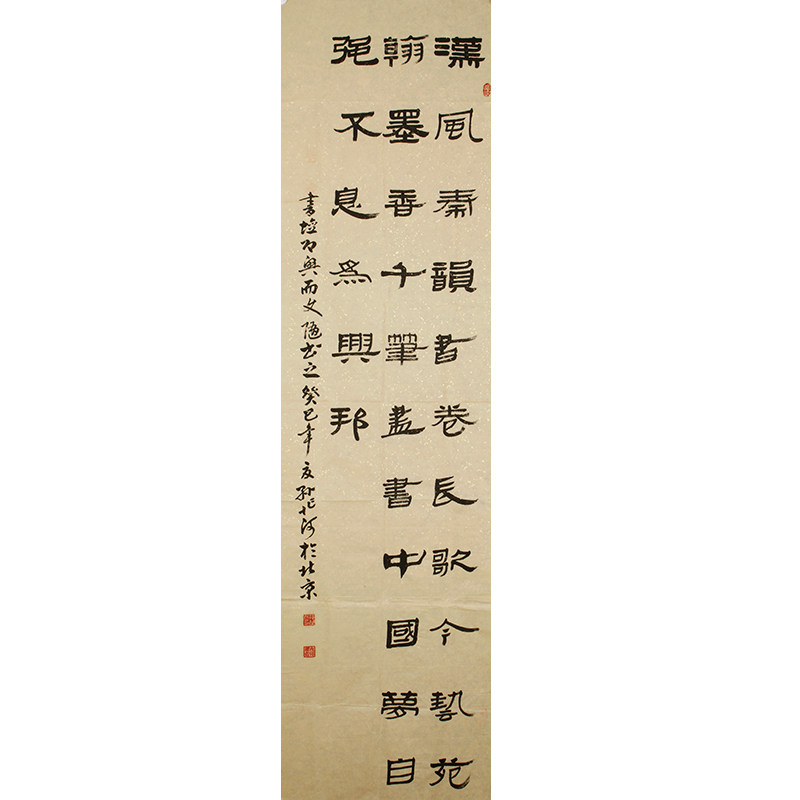 漢風秦韻書卷長歌今藝苑
翰墨香千筆盡書中國夢自
強不息為興邦
書壇興而文隨书之癸巳年夏孙河於北京